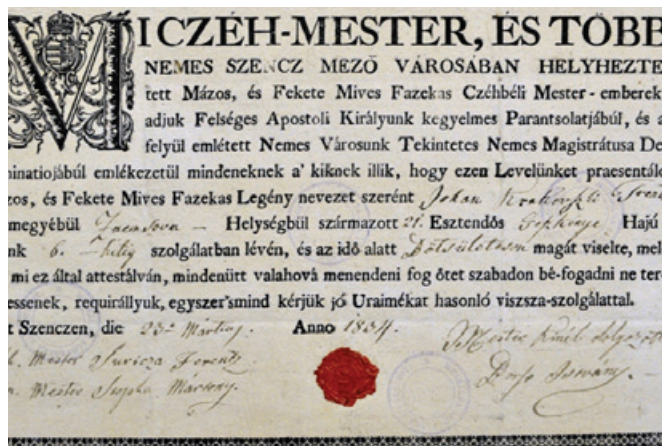 MI CZÉH-MESTER, ÉS TÖBB
NEMES SZENCZ MEZŐ VÁROSÁBAN HELYHEZTE
tett Mázos, és Fekete Mives Fazekas Czéhbéli Mester-emberek
adjuk Felséges Apostoli Királyunk kegyelmes Parantsolatjából, és a
felyül emlétett Nemes Városunk Tekintetes Nemes Magistrátusa De
minatiojából emlékezetül mindeneknek a' kiknek illik, hogy ezen Levelünket praesentál
zos, és Fekete Mives Fazekas Legény nevezet szerént Johan
megyéből Helységből származott 21. Esztendős Hajú
nk 6. hétig szolgálatban lévén, és az idő alatt magát viselte, mel
mi ez által attestálván, mindenütt valahová menendeni fog őtet szabadon bé-fogadni ne ter
essenek, requirállyuk, egyszer'smind kérjük jó Uraimékat hasonló viszsza-szolgálattal.
t Szenczen, die 23a Márty. Anno 1834.
Mester Ferentz Mester
Mester Márton István